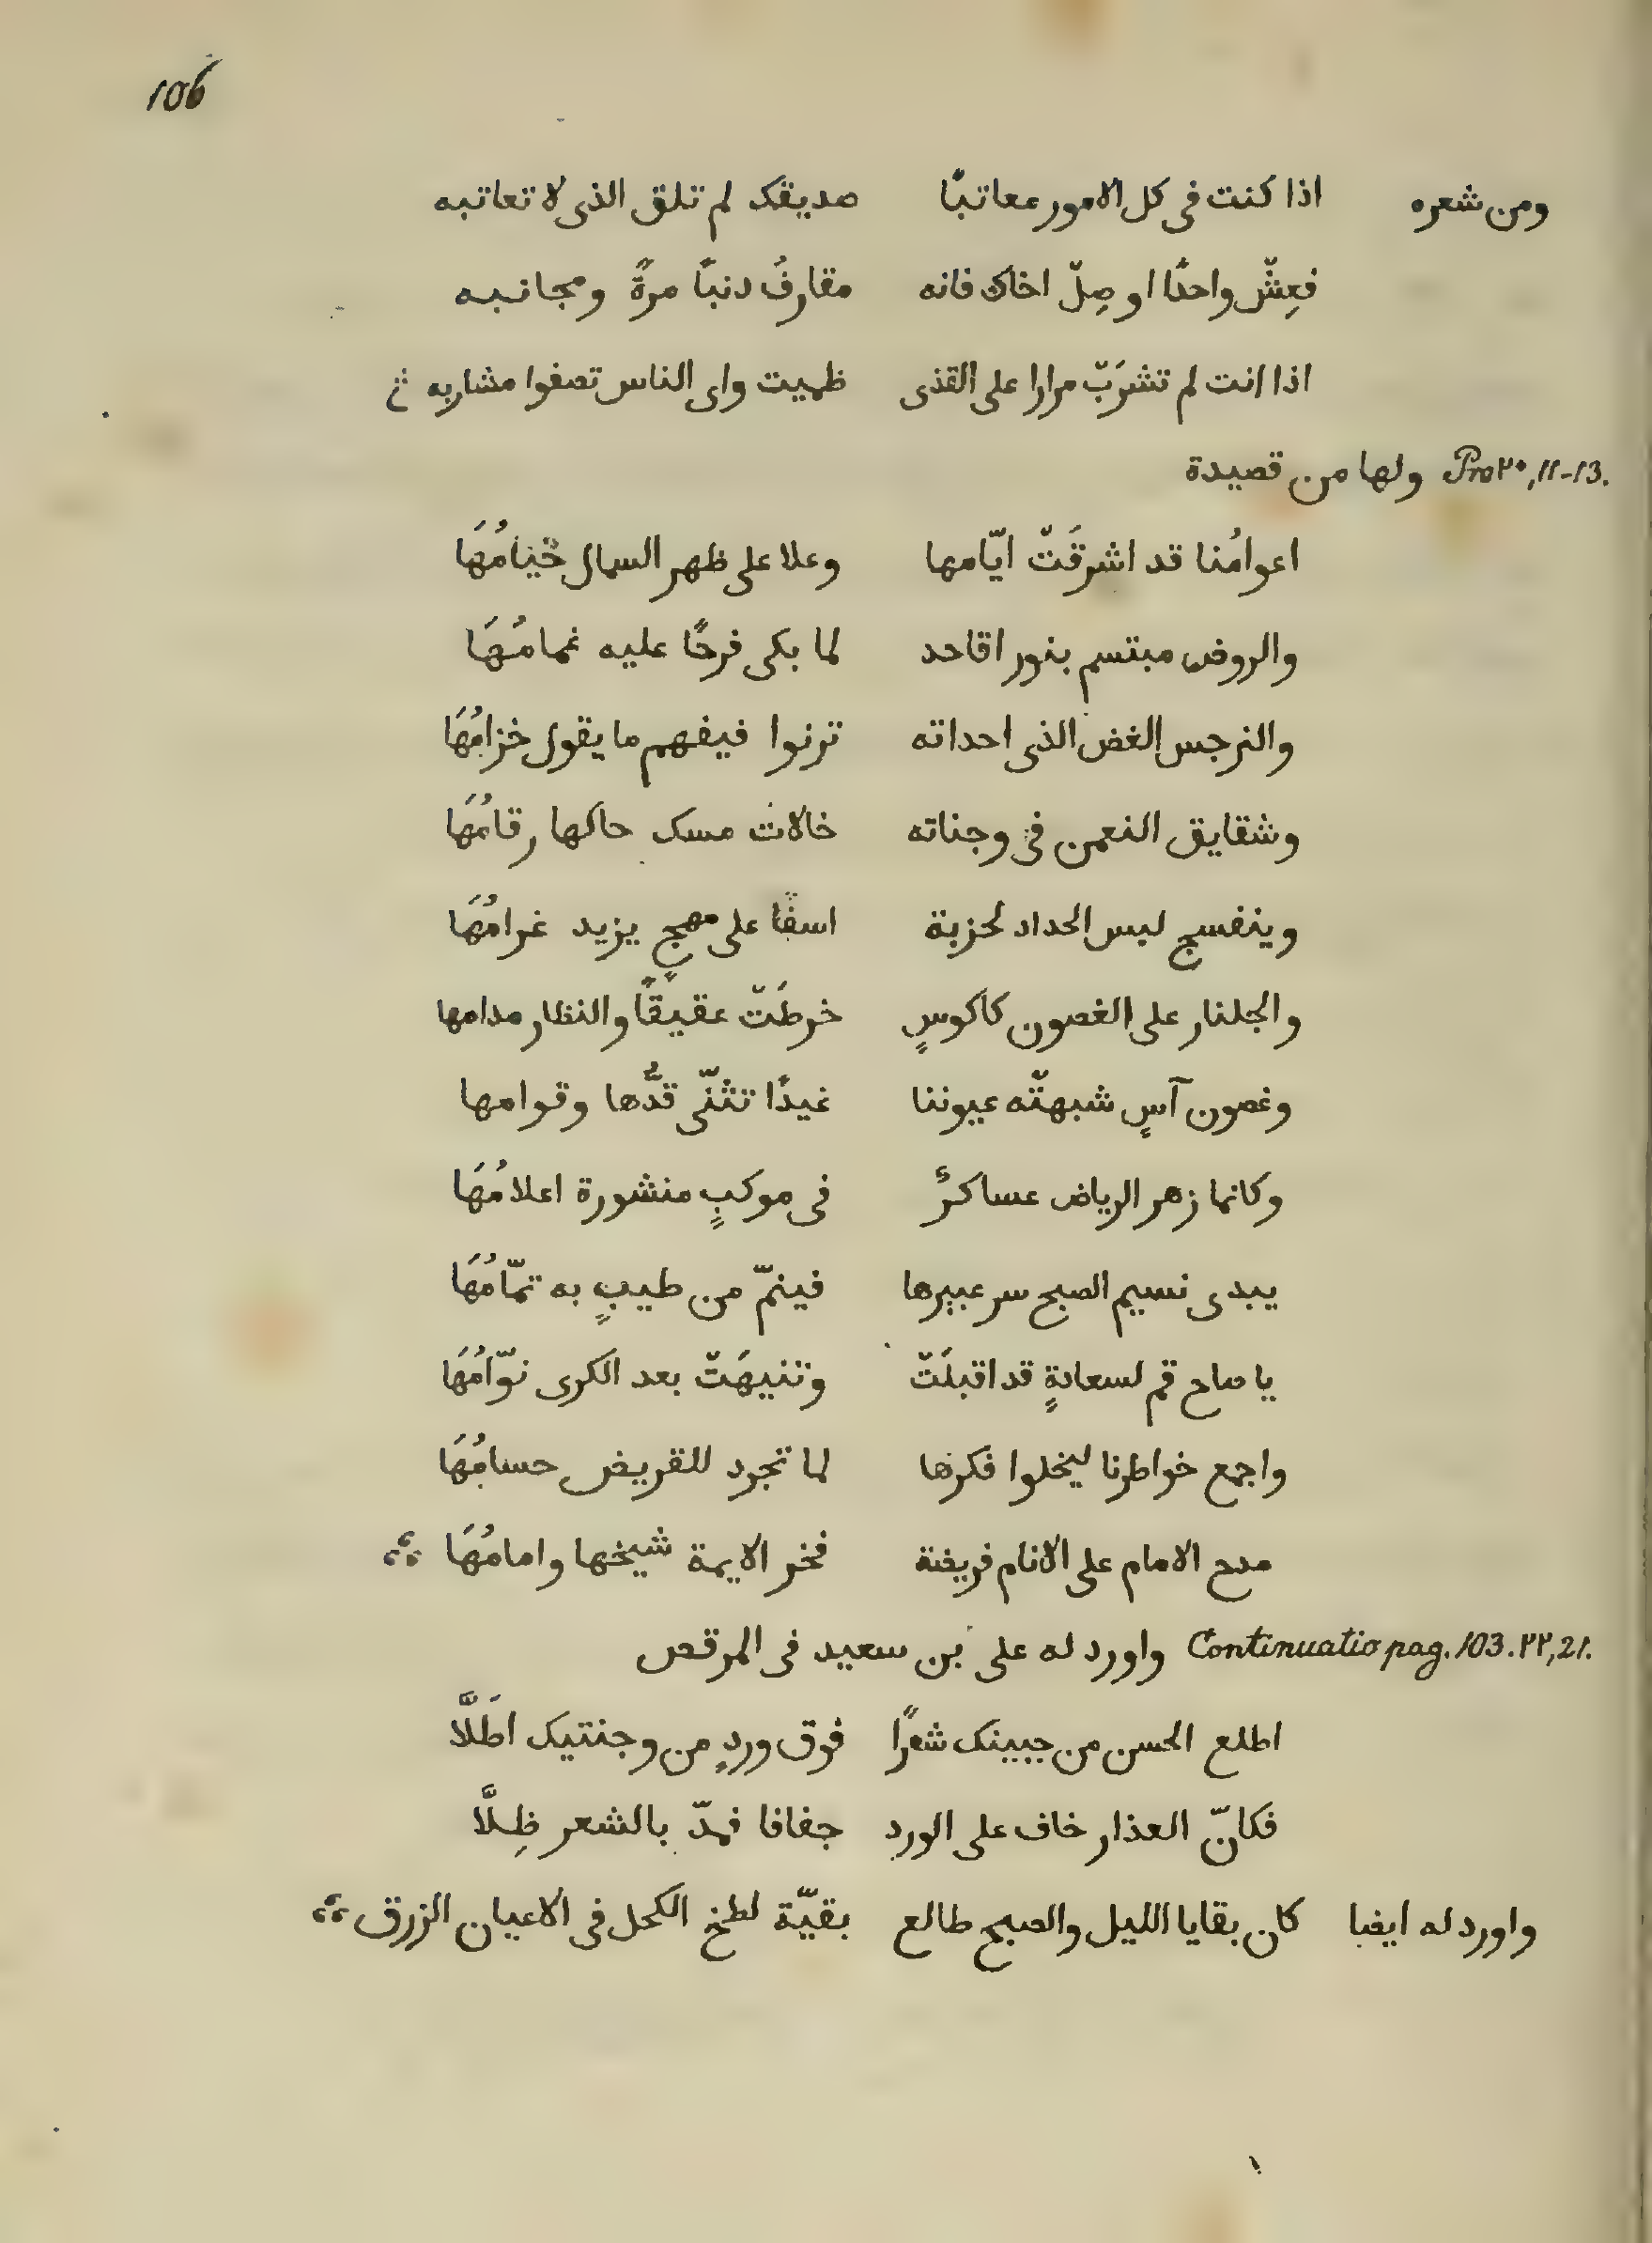 106
ومن شعره اذا كنت فى كل الامور معاتبًا صديقك لم تلق الذى لا تعاتبه
فعِشّ واحدًا او صِلّ اخاك فانه مقارفُ دنبًا مرةً ومجانبه
اذا انت لم تشرَبّ مرارا على القذى ظميت واى الناس تصفوا مشاربه
Pro ٢٠, 11-13. ولها من قصيدة
اعوامُنا قد اشرقَتّ ايّامها وعلا على ظهر السمال خيامُهَا
والروض مبتسم بنور اقاحد لما بكى فرحًا عليه غمامُهَا
والنرجس الغض الذى احداته ترنوا فيفهم ما يقول خزامُهَا
وشقايق النعمن فى وجناته خالات مسك حاكها رقامُهَا
وينفسج لبس الحداد لحزبة اسفًا على مهجٍ يزيد غرامُهَا
والجلنار على الغصون كاكوسٍ خرطَتّ عقيقًا والنظار مدامها
وغصون آسٍ شبهتّه عيوننا غيدًا تثنّى قدُّها وقوامها
وكانما زهر الرياض عساكرٌ فى موكبٍ منشورة اعلامُهَا
يبدى نسيم الصبح سر عبيرها فينمّ من طيبٍ به تمّامُهَا
يا صاح قم لسعادةٍ قد اقبلَتّ وتنيهَتّ بعد الكرى نوّامُهَا
واجمع خواطرنا ليخلوا فكرها لما تجرد للقريض حسامُهَا
مدح الامام على الانام فريضة فخر الايمة شيخها وامامُهَا
Continuatio pag. 103. ٢٢, 21. واورد له على بن سعيد فى المرقص
اطلع الحسن من جبينك شعرًا فوق وردٍ من وجنتيك اطَلَّا
فكانّ العذار خاف على الورد جفافا فمدّ بالشعر ظِلَّا
واورد له ايضا كان بقايا الليل والصبح طالع بقيّة لطخ الكحل فى الاعيان الزرق